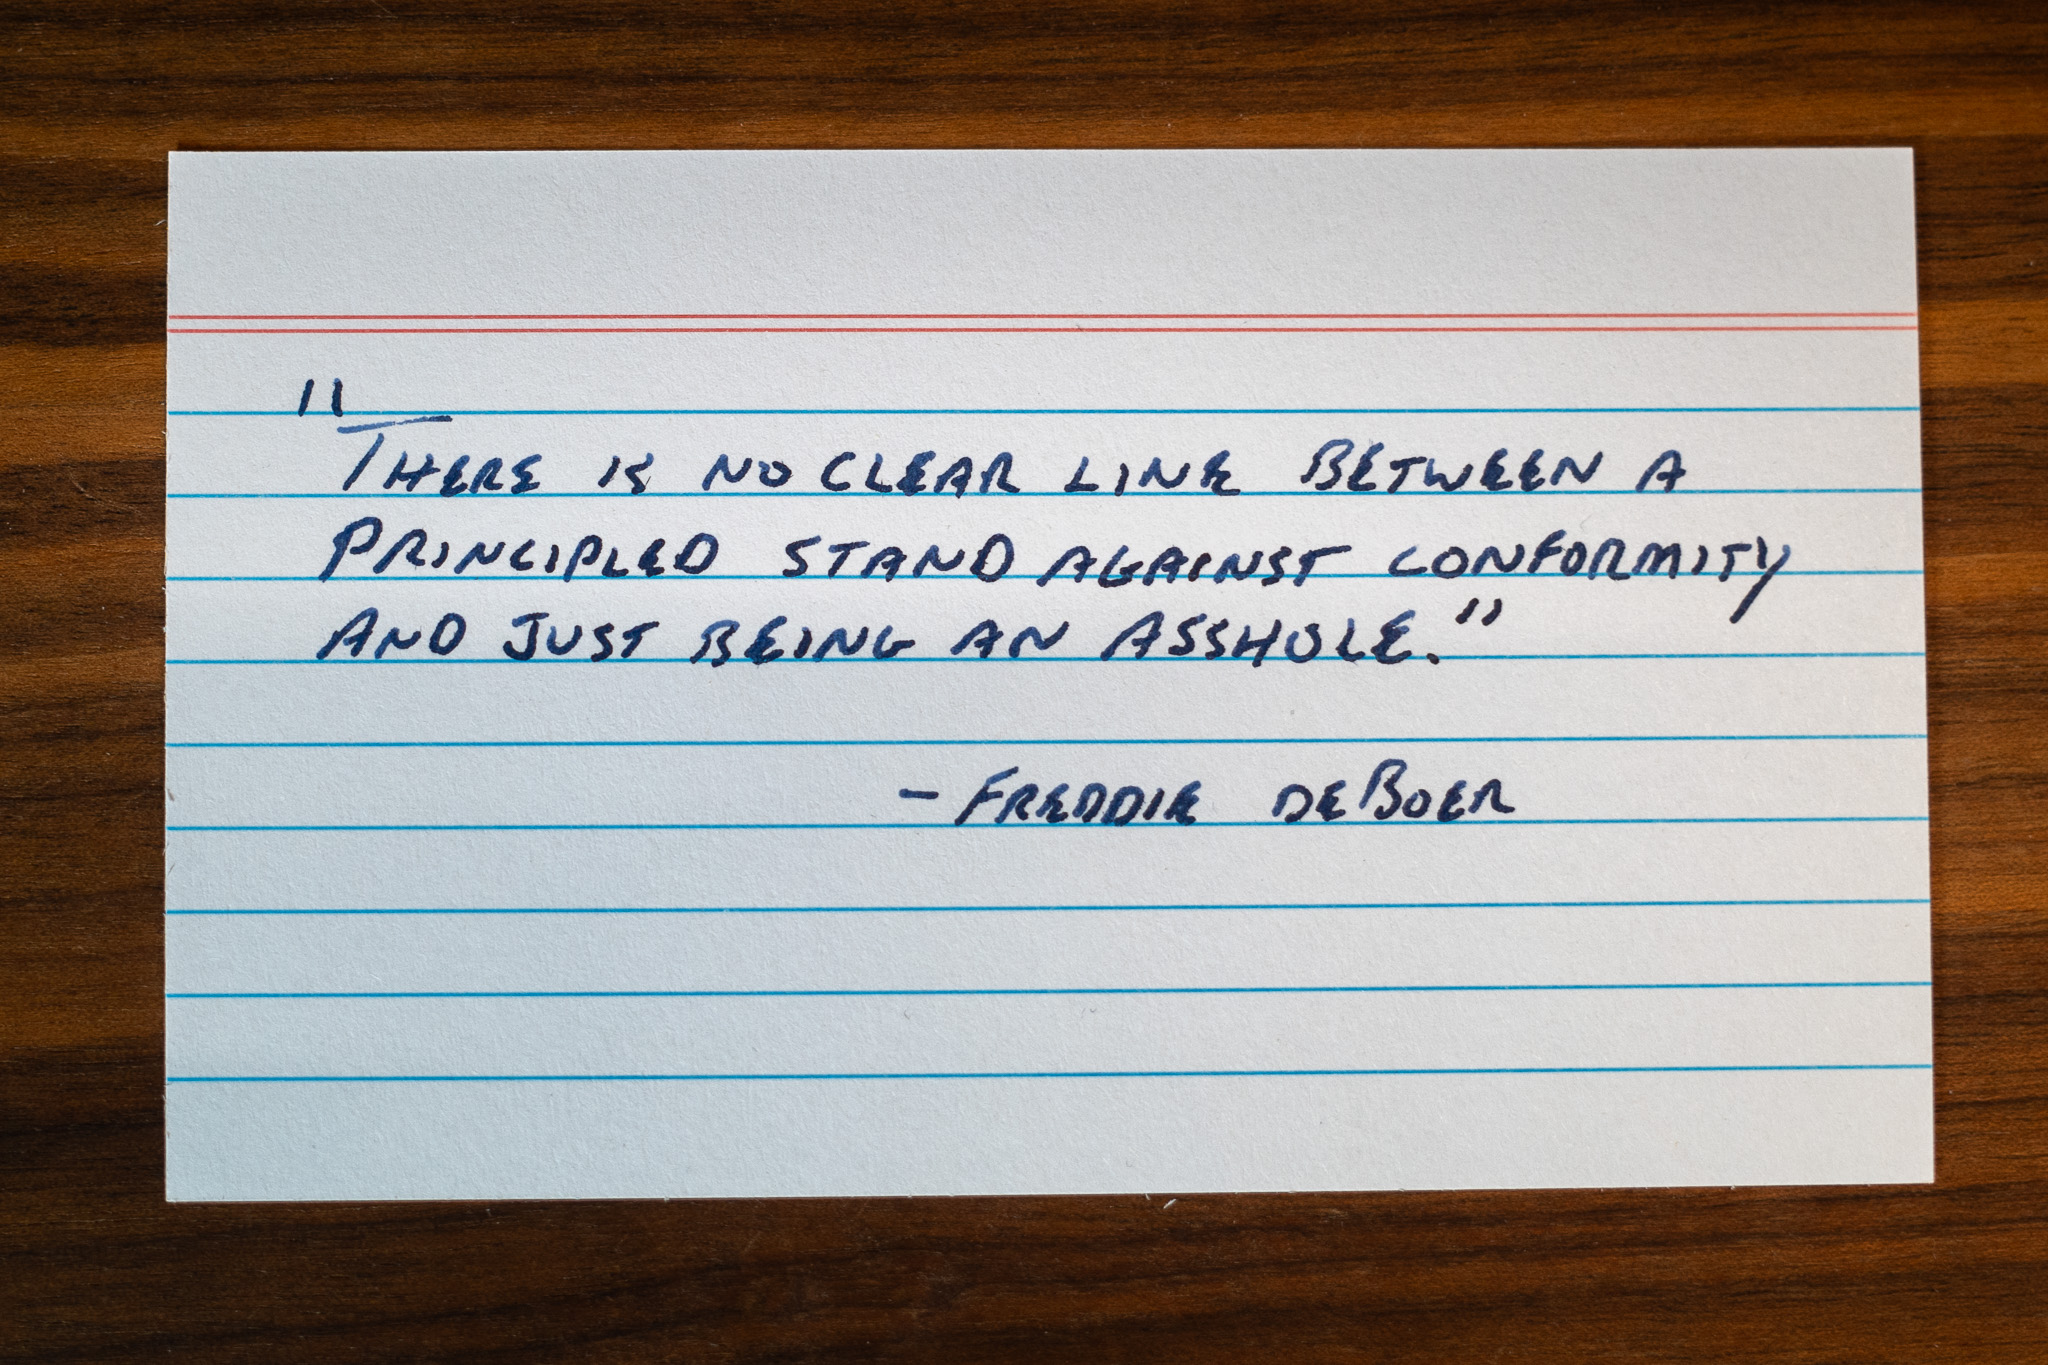 "THERE IS NO CLEAR LINE BETWEEN A
PRINCIPLED STAND AGAINST CONFORMITY
AND JUST BEING AN ASSHOLE."
- FREDDIE DEBOER